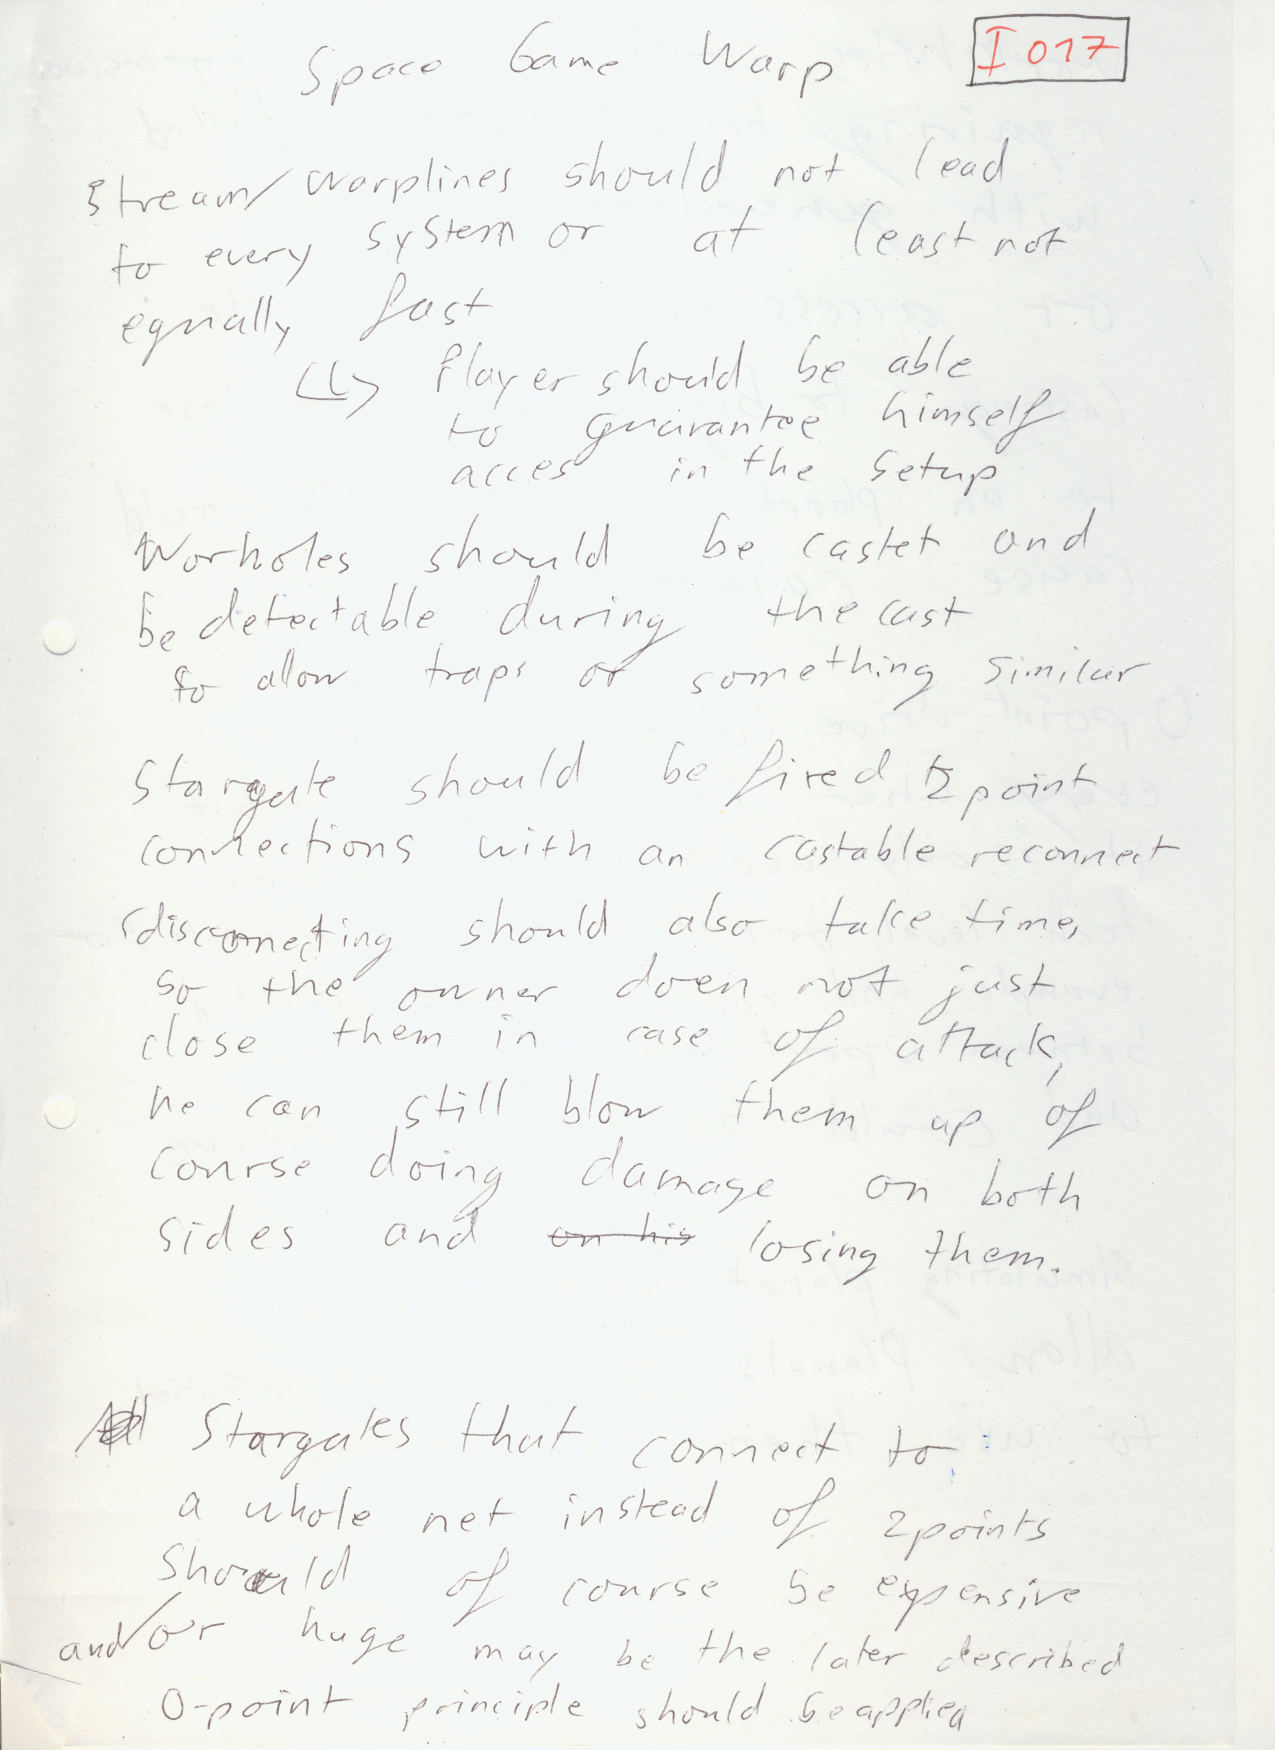 Space Game Warp
I 017
Stream/Warplines should not lead
to every system or at least not
equally fast
↳ Player should be able
to guarantee himself
acces in the Setup
Worholes should be castet and
be detectable during the cast
to allow traps or something similar
Stargate should be fixed 2 point
connections with an castable reconnect
(disconnecting should also take time,
so the owner doen not just
close them in case of attack,
he can still blow them up of
course doing damage on both
sides and on his losing them.
Stargates that connect to
a whole net instead of 2points
should of course be expensive
and/or huge may be the later described
0-point principle should be applied